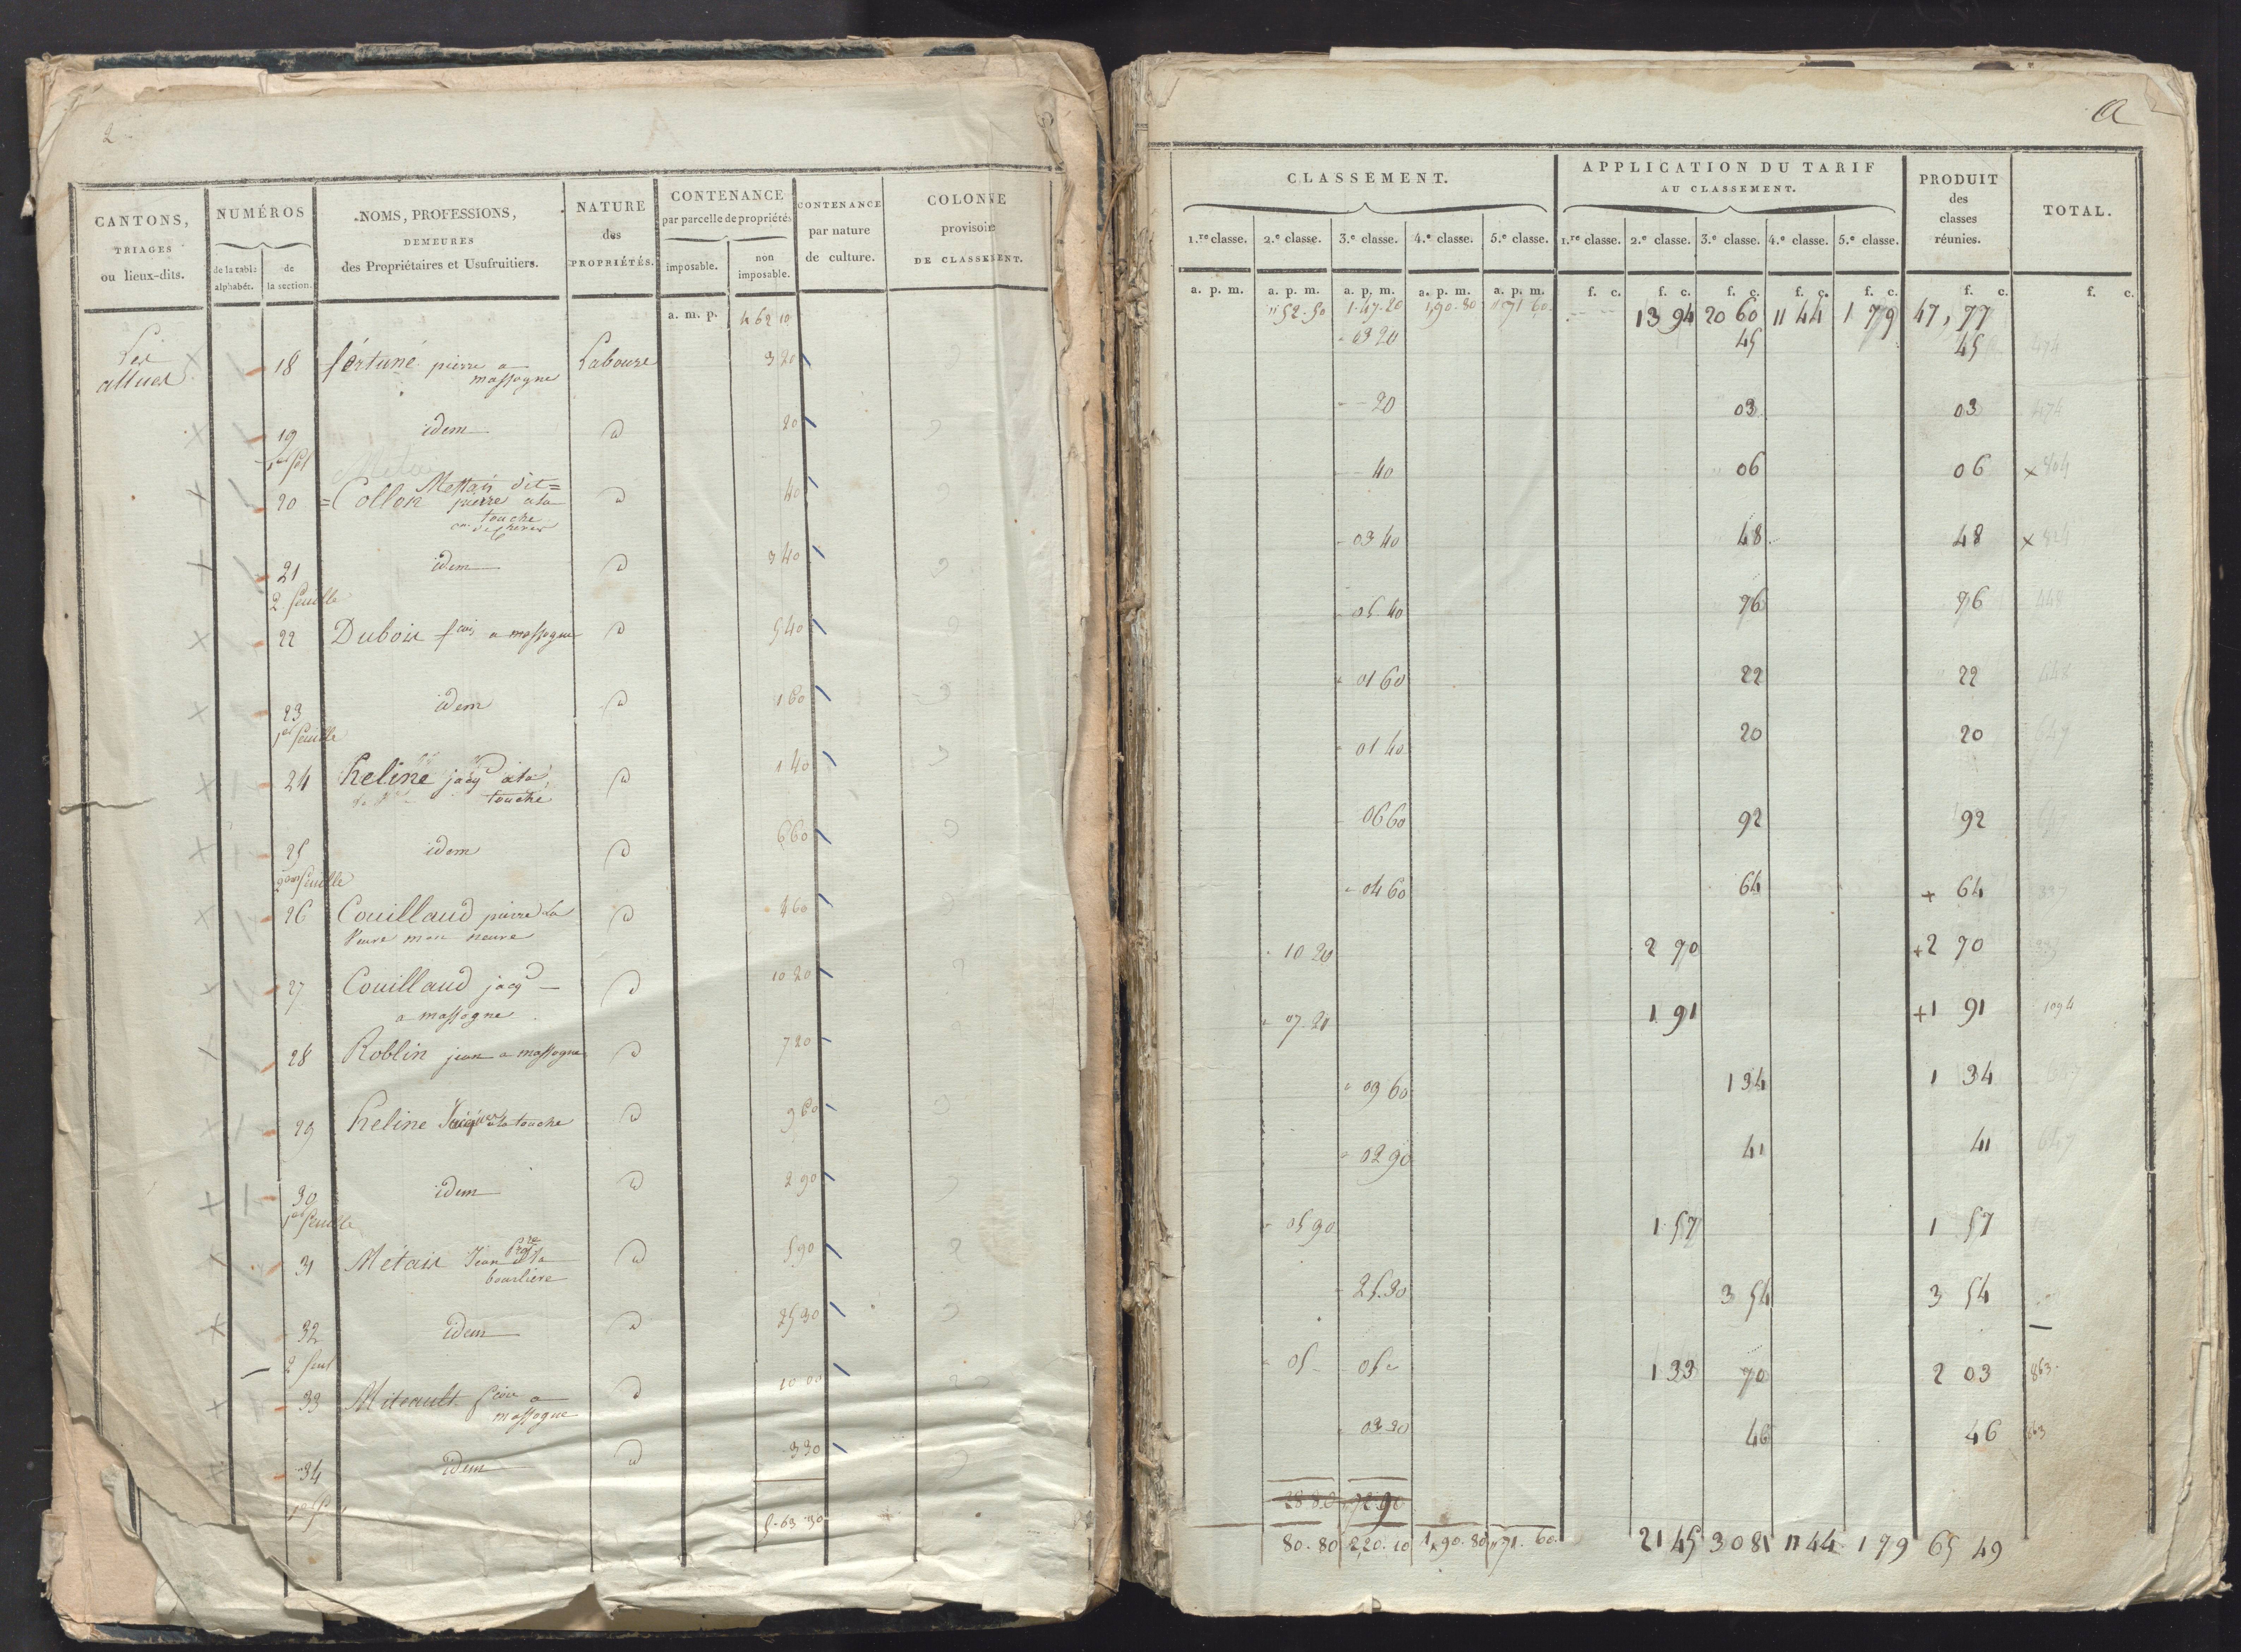 2
CANTONS,
TRIAGES
ou lieux-dits.
NUMÉROS
de la table alphabét.
de la section.
NOMS, PROFESSIONS,
DEMEURES
des Propriétaires et Usufruitiers.
NATURE
des
PROPRIÉTÉS.
CONTENANCE
par parcelle de propriétés
imposable.
non imposable.
CONTENANCE
par nature
de culture.
COLONNE
provisoire
DE CLASSEMENT.
a. m. p. 4 62 10
Les 18 fortuné pierre a Laboure 3 20
massogne
19 idem d 20
Mettais dit=
20 =Collon pierre a la d 40
touche
21 idem d 3 40
2 feuille
22 Dubois fcois a massogne d 5 40
23 idem d 1 60
1ere feuille
24 heline jacq a la d 1 40
touche
25 idem d 6 60
2eme feuille
26 Couillaud pierre La d 4 60
27 Couillaud jacq d 10 20
a massogne
28 Roblin jean a massogne d 7 20
29 heline Jacques a la touche d 9 60
30 idem d 2 90
1ere feuille
31 Metais Jean a la d 5 90
32 idem d 25 30
33 a d 10 00
massogne
34 idem d 3 30
5-63 30
a
CLASSEMENT.
1.re classe. 2.e classe. 3.e classe. 4.e classe. 5.e classe.
APPLICATION DU TARIF
AU CLASSEMENT.
1.re classe. 2.e classe. 3.e classe. 4.e classe. 5.e classe.
PRODUIT
des
classes
réunies.
TOTAL.
a. p. m. a. p. m. a. p. m. a. p. m. a. p. m. f. c. f. c. f. c. f. c. f. c. f. c. f. c.
" 52. 50 1. 47. 20 1,90. 80 " 71 60 13 94 20 60 11 44 1 79 47, 77
- 03 20 45 45
- - 20 03 03 474
- - 40 06 06 x
- 03 40 48 48 x
- 05. 40 76 76
01 60 22 22
- 01 40 20 20
06 60 92 92
- 04 60 64 + 64
10 20 2 70 +2 70
07. 20 1 91 +1 91 1094
09 60 1 34 1 34
02 90 41 41
05 90 1 57 1 57
25. 30 3 54 3 54
05 - 05 - 1 33 70 2 03 863.
03 30 46 46 863
28 80 72 90
80. 80 2,20. 10 1,90. 80 " 71. 60 21 45 30 81 11 44 1 79 65 49